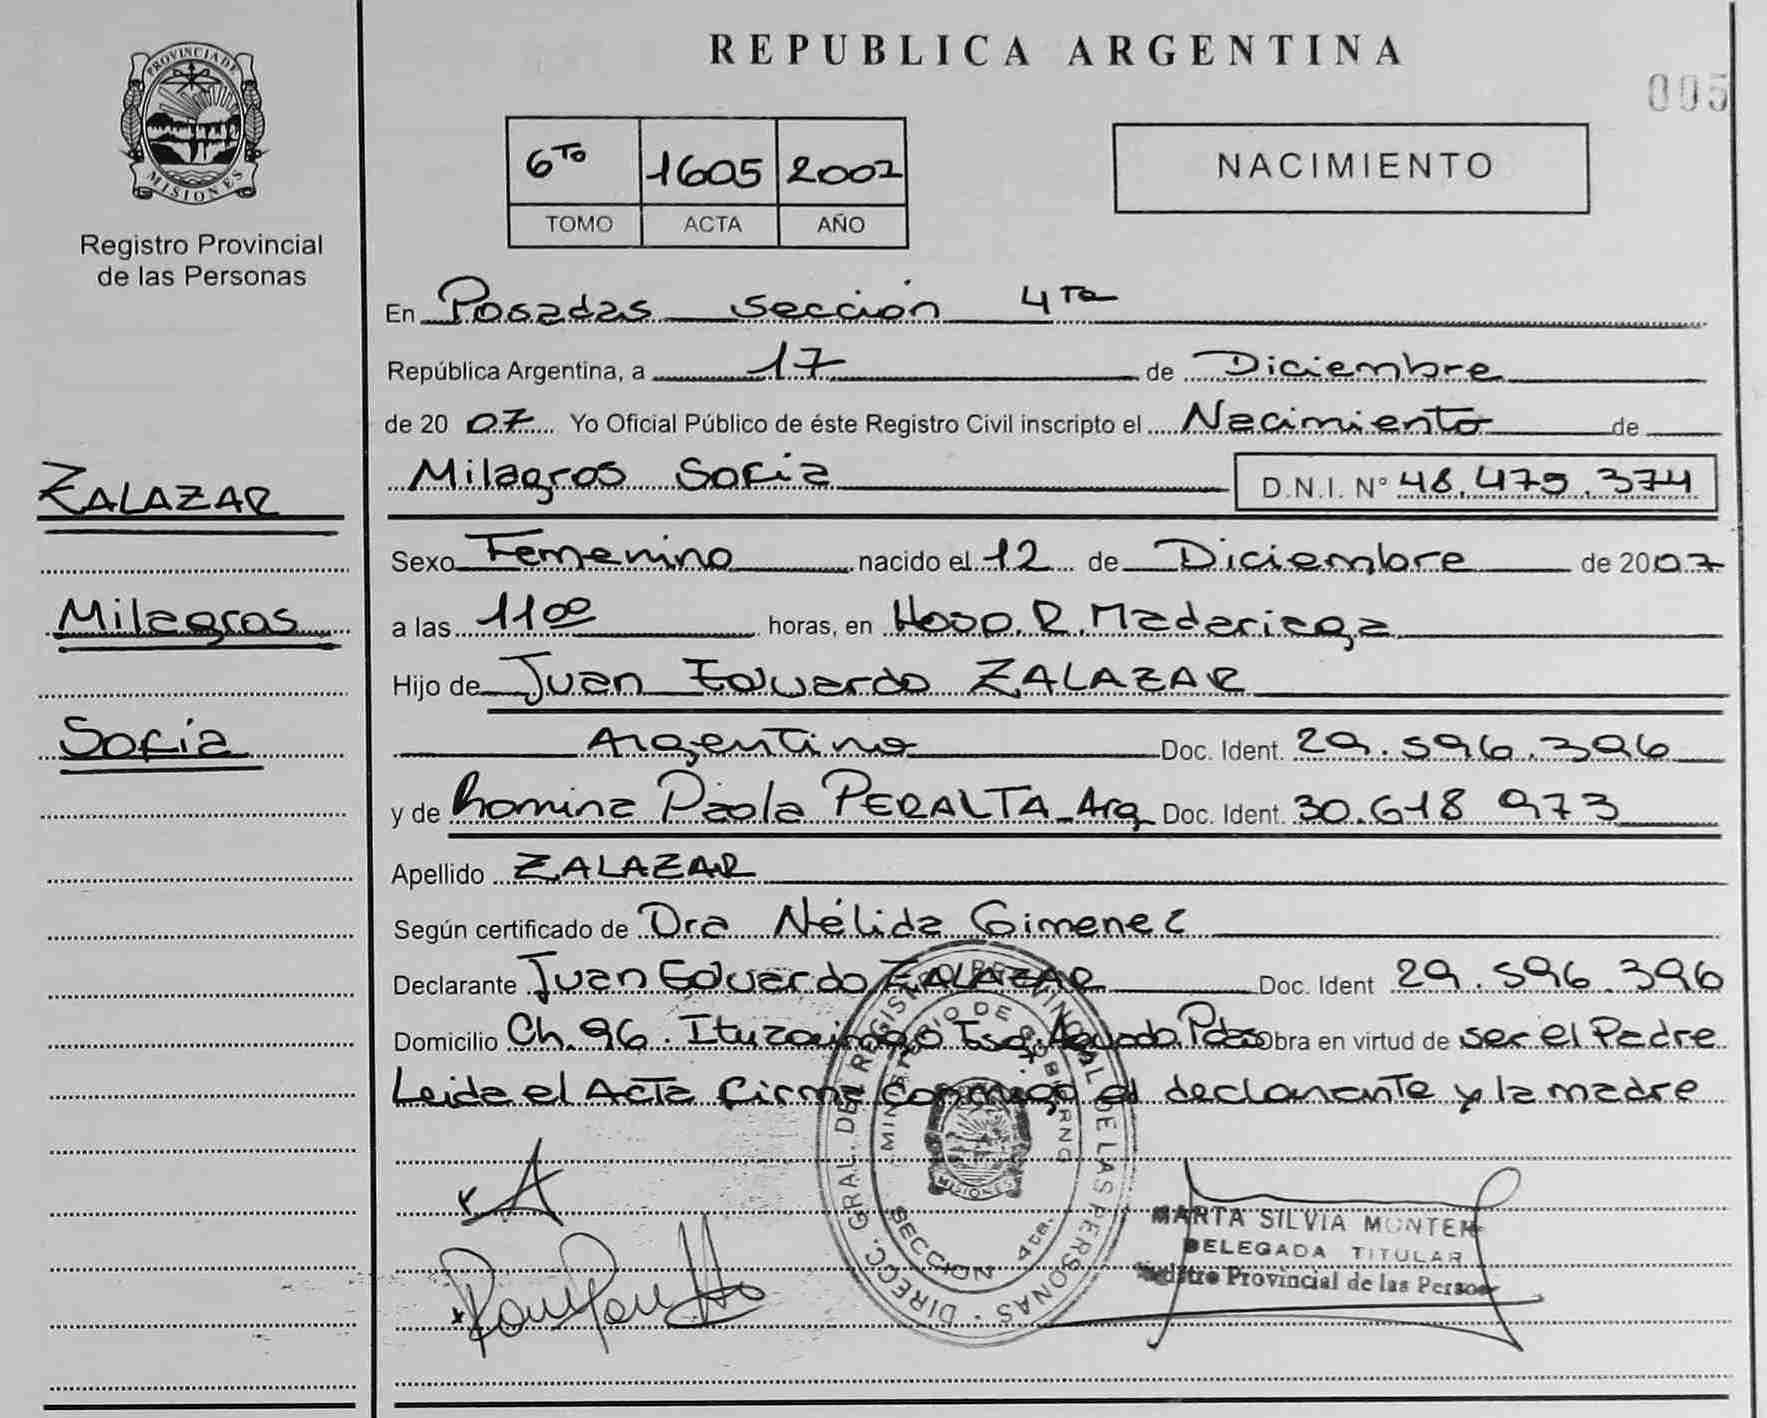 REPUBLICA ARGENTINA
005
PROVINCIA DE
MISIONES
Registro Provincial
de las Personas
6to 1605 2007
TOMO ACTA AÑO
NACIMIENTO
En Posadas sección 4ta
República Argentina, a 17 de Diciembre
de 2007 Yo Oficial Público de éste Registro Civil inscripto el Nacimiento de
Milagros Sofia D.N.I. N° 48.479.374
ZALAZAR
Milagros
Sofia
Sexo Femenino nacido el 12 de Diciembre de 2007
a las 11 00 horas, en Hosp. R. Madariaga
Hijo de Juan Eduardo ZALAZAR
Argentino Doc. Ident. 29.596.396
y de Romina Paola PERALTA Arg Doc. Ident. 30.618 973
Apellido ZALAZAR
Según certificado de Dra Nélida Gimenez
Declarante Juan Eduardo ZALAZAR Doc. Ident 29.596.396
Domicilio Ch. 96. Ituzaingo Esq. Aguado Pdas Obra en virtud de ser el Padre
Leida el Acta firma conmigo el declarante y la madre
DIRECC. GRAL DEL REGISTRO PROVINCIAL DE LAS PERSONAS
MINISTERIO DE GOBIERNO
MISIONES
SECCION 4ta.
MARTA SILVIA
DELEGADA TITULAR
Registro Provincial de las Personas